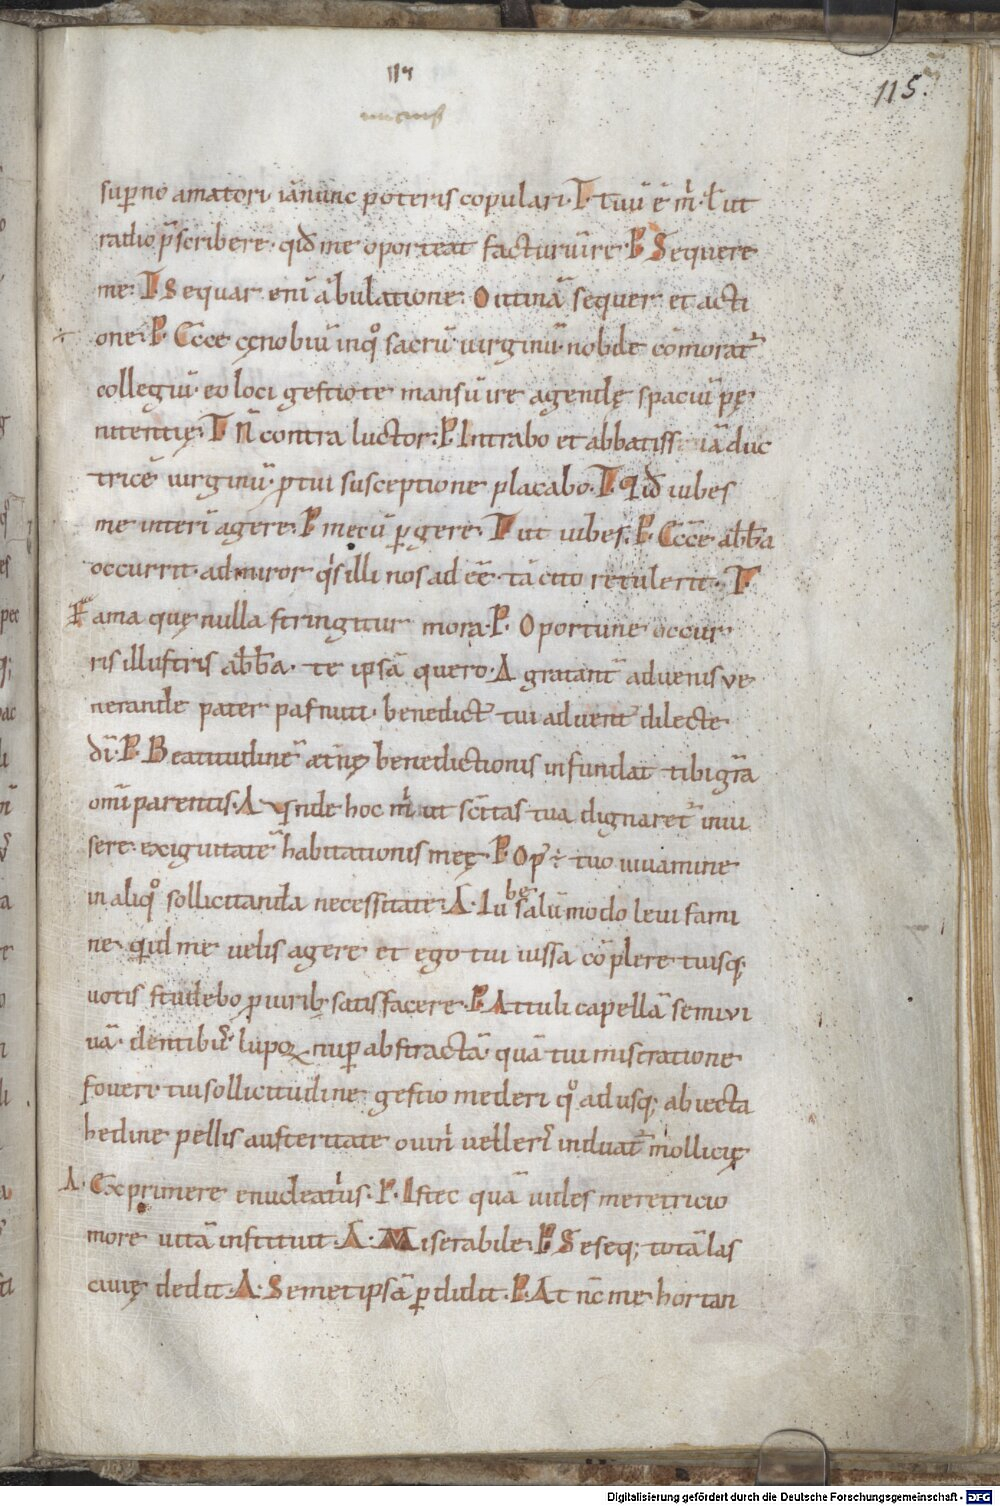 115.
sup̄no amatori· iānunc poteris copulari· T tuū ē m̄· ł ut
radio p̄scribere· qid me oporteat facturūire· P Sequere
me· T Sequar eni ābulatione· O utinā sequer et acti
one· P Ecce cęnobiū inq̊ sacrū uirginū nobile cōmorat̄
collegiū· eo loci gestio te mansū ire agendę spaciū pę
nitentię· T n̄ contra luctor· P Intrabo et abbatissā iā duc
tricē uirginū· p tui susceptione placabo· T Qid iubes
me interī agere· P mecū ꝑgere· T ut iubes· P Ecce abb̄a
occurrit· admiror q's illi nos adeē· tā cito retulerit· T
Fama quę nulla stringitur mora· P· Oportune occur
ris illustris abb̄a· te ipsā quero· A gratant̄ aduenis ve
nerande pater pafnuti· benedict' tui aduent' dilecte
dī· P· Beatitudinē ætnę benedictionis infundat tibi gr̄a
omīparentis· A Vnde hoc m̄ ut sc̄itas tua dignaret̄ inui
sere exiguitatē habitationis meę· P Op' ÷ tuo iuuamine
in aliq̊ sollicitanda necessitate· A· Iube salū modo leui fami
ne quid me uelis agere et ego tui iussa cōplere tuisq;
uotis studebo p uirib; satisfacere· P Attuli capellā semivi
uā· dentib' lupoꝝ nup abstractā· quā tui misratione
foueri tui sollicitudine gestio mederi q̊ adusq; abiecta
hedine pellis austeritate ouini uelleri' induat̄ mollicię
A· Exprimere enucleati'us· P· Istec quā uides meretricio
more uitā instituit· A· Miserabile· P Seseq; totā las
ciuię dedit· A· Semetipsā ꝑdidit· P· At nc̄ me hortan
Digitalisierung gefördert durch die Deutsche Forschungsgemeinschaft - DFG